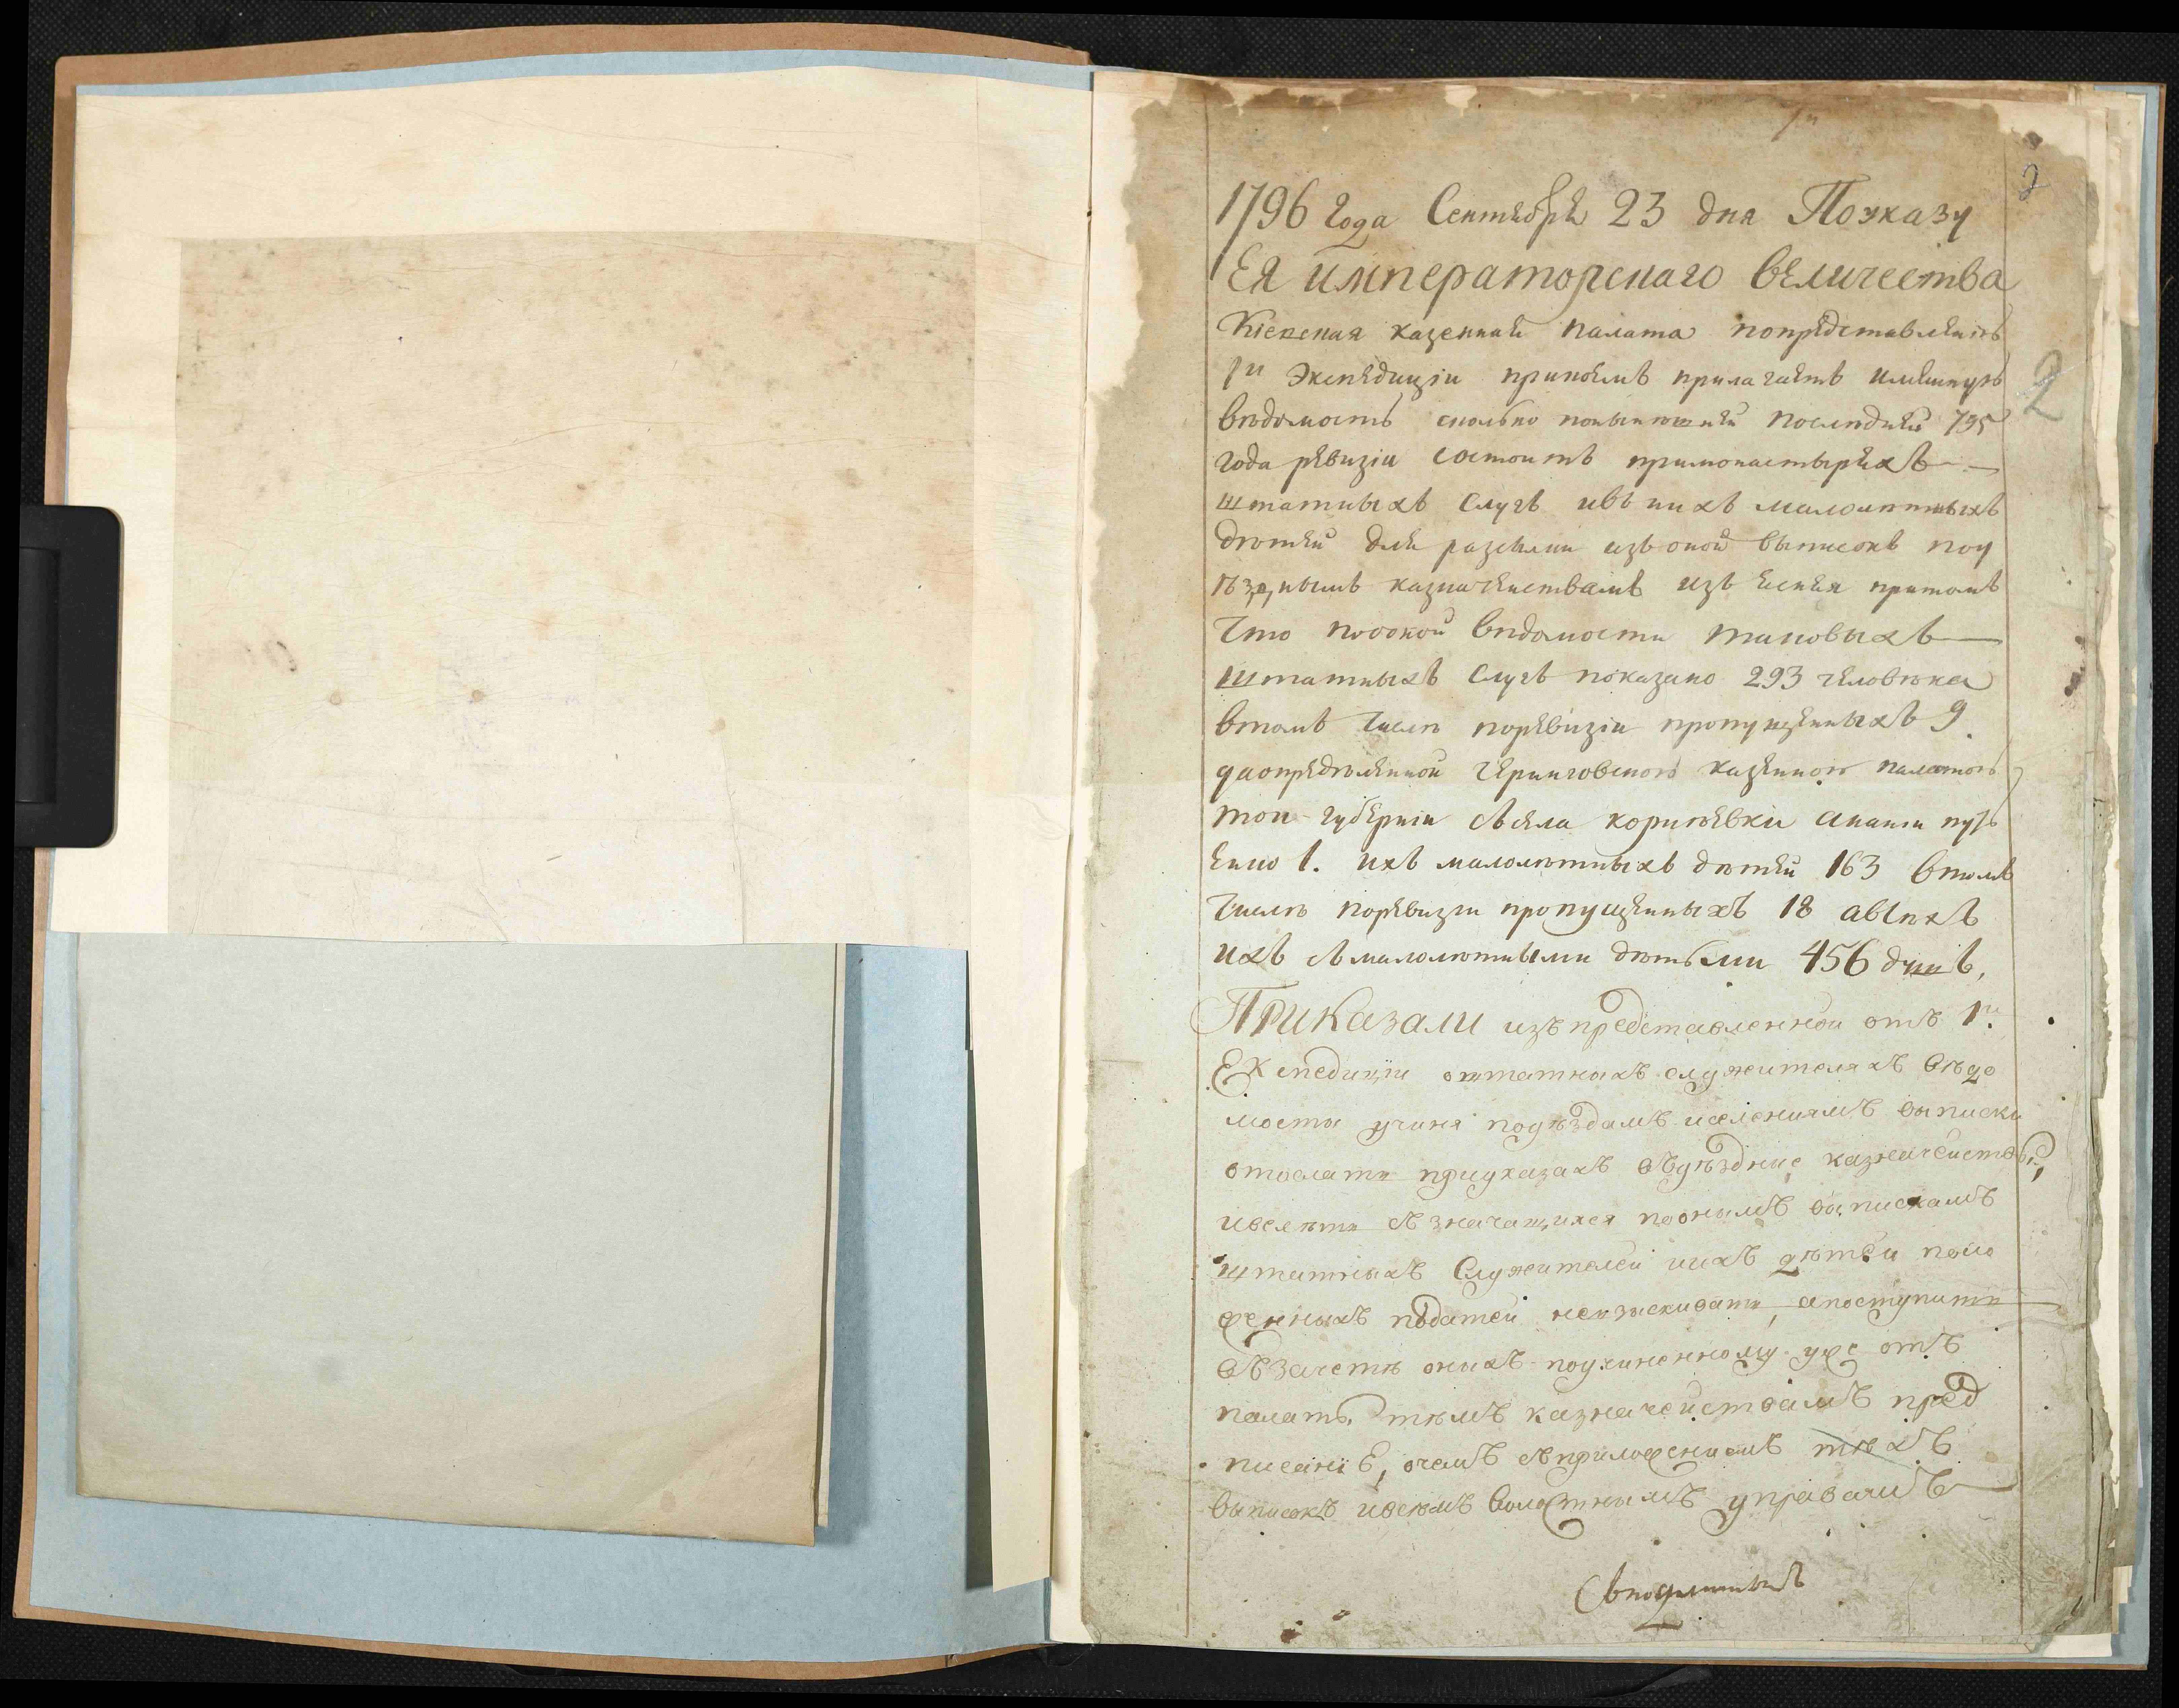 1й
2
1796 года Сентября 23 дня Поуказу
Ея императорскаго величества
Кіевская казенная палата попредставленію
1й Экспедиціи прикоемъ прилагаетъ именную
ведомость сколько понынешней последней 795
года ревизіи состоитъ примонастыряхъ
штатныхъ слугъ ивъ нихъ малолетныхъ
детей для разсылки изъ оной выписокъ поу
ѣзднымъ казначействамъ изъ
притомъ
Что пооной ведомости таковыхъ
штатныхъ слугъ показано 293 человека
втомъ числѣ поревизіи пропущенныхъ 9
даопредѣленной Черниговскою казенною палатою
той губерніи съсела
1. ихъ малолѣтныхъ дѣтей 163 втомъ
числѣ поревизіи пропущенныхъ 18 авсѣхъ
ихъ съмалолѣтными дѣтьми 456 душъ,
Приказали изъпредставленной отъ 1й
Експедиціи оштатныхъ служителяхъ вѣдо
мости учиня поуѣздамъ иселениямъ выписки
отослать приуказахъ въуѣздные казначействы,
ивелѣть съзначащихся поонымъ выпискамъ
штатныхъ Служителей иихъ дѣтей поло
женныхъ податей невзыскивать, апоступить
въ зачетѣ оныхъ поучиненному уже отъ
палаты тѣмъ казначействамъ пред
писаніе, очемъ съприложениемъ тѣхъ
выписокъ ивсѣмъ волостнымъ
2